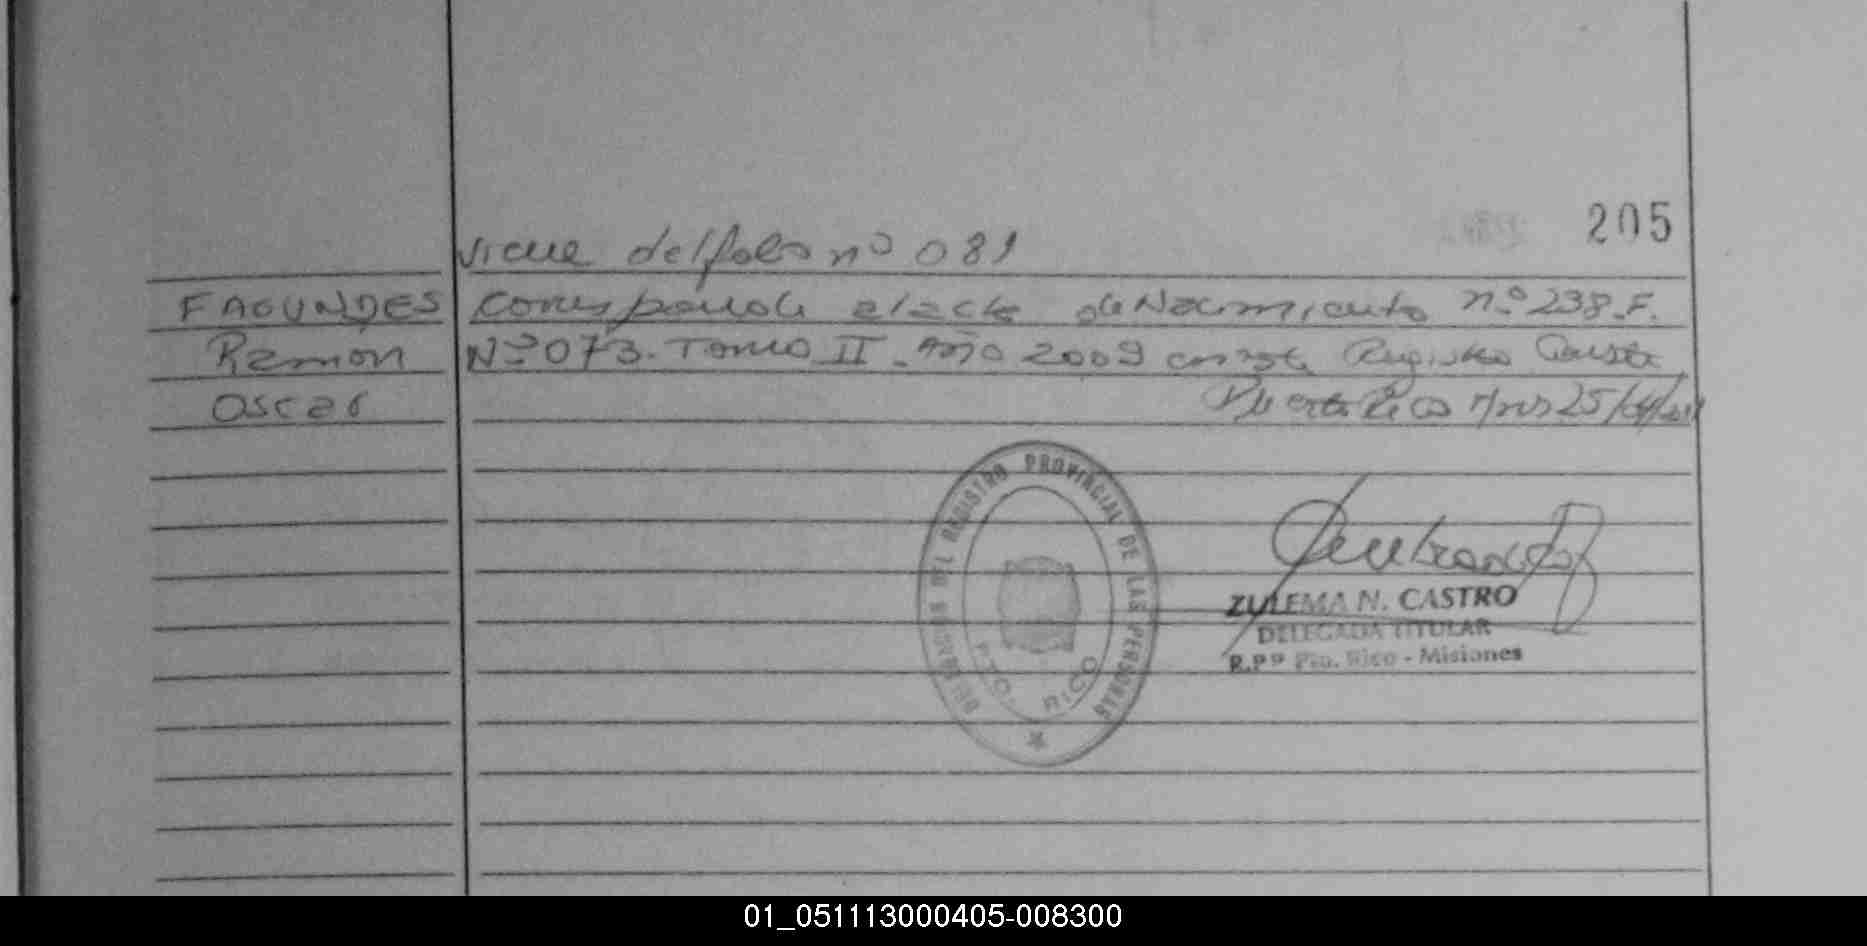 205
viene del folio nº 081
FAGUNDES corresponde al acta de Nacimiento nº 238. F.
Ramon Nº 073. Tomo II. Año 2009 Registro Consta
Oscar Puerto Rico 25/04/
DELEGACION DEL REGISTRO PROVINCIAL DE LAS PERSONAS
PTO. RICO
ZULEMA N. CASTRO
DELEGADA TITULAR
R.P.P Pto. Rico - Misiones
01_051113000405-008300